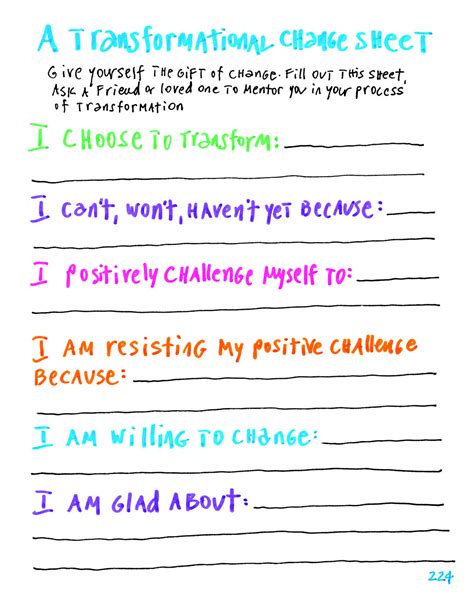 A Transformational Change Sheet
Give yourself the gift of change. Fill out this sheet,
Ask a friend or loved one to mentor you in your process
of transformation
I choose to transform:
I can't, won't, haven't yet because:
I positively challenge myself to:
I am resisting my positive challenge
because:
I am willing to change:
I am glad about:
224